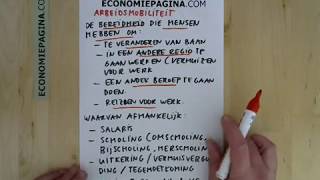 ECONOMIEPAGINA.COM
ECONOMIEPAGINA.COM
ARBEIDSMOBILITEIT
DE BEREIDHEID DIE MENSEN
HEBBEN OM:
- TE VERANDEREN VAN BAAN
- IN EEN ANDERE REGIO TE
GAAN WERKEN (VERHUIZEN
VOOR WERK
- EEN ANDER BEROEP TE GAAN
DOEN.
- REIZEN VOOR WERK.
WAARVAN AFHANKELIJK:
- SALARIS
- SCHOLING (OMSCHOLING,
BIJSCHOLING, HERSCHOLING)
- UITKERING / VERHUISVERGOE
DING / TEGEMOETKOMING